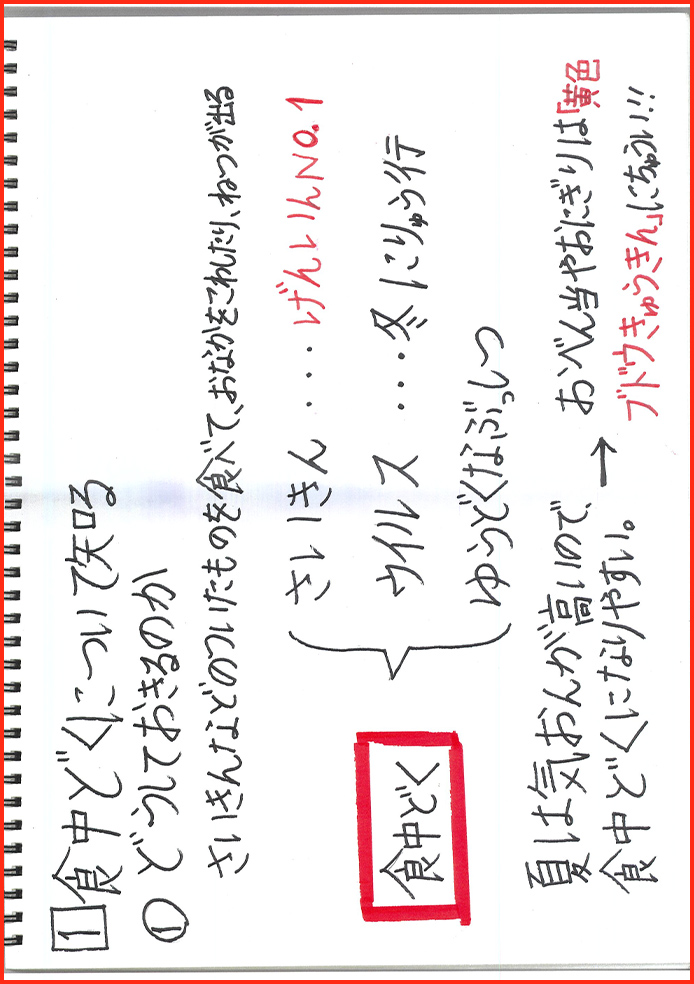 1 食中どくについて知る
① どうしておきるのか
さいきんなどのついたものを食べて、おなかをこわしたり、ねつが出る
食中どく
さいきん ・・・・ げんいんNO.1
ウイルス ・・・ 冬にりゅう行
ゆうどくなぶっしつ
夏は気おんが高いので、
食中どくになりやすい。
→ おべん当やおにぎりは「黄色
ブドウきゅうきん」にちゅうい!!